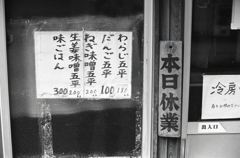 わらじ五平 150
だんご五平 100
ねぎ味噌五平 200
生姜味噌五平 200
味ごはん 300
本日休業
冷房
出入口